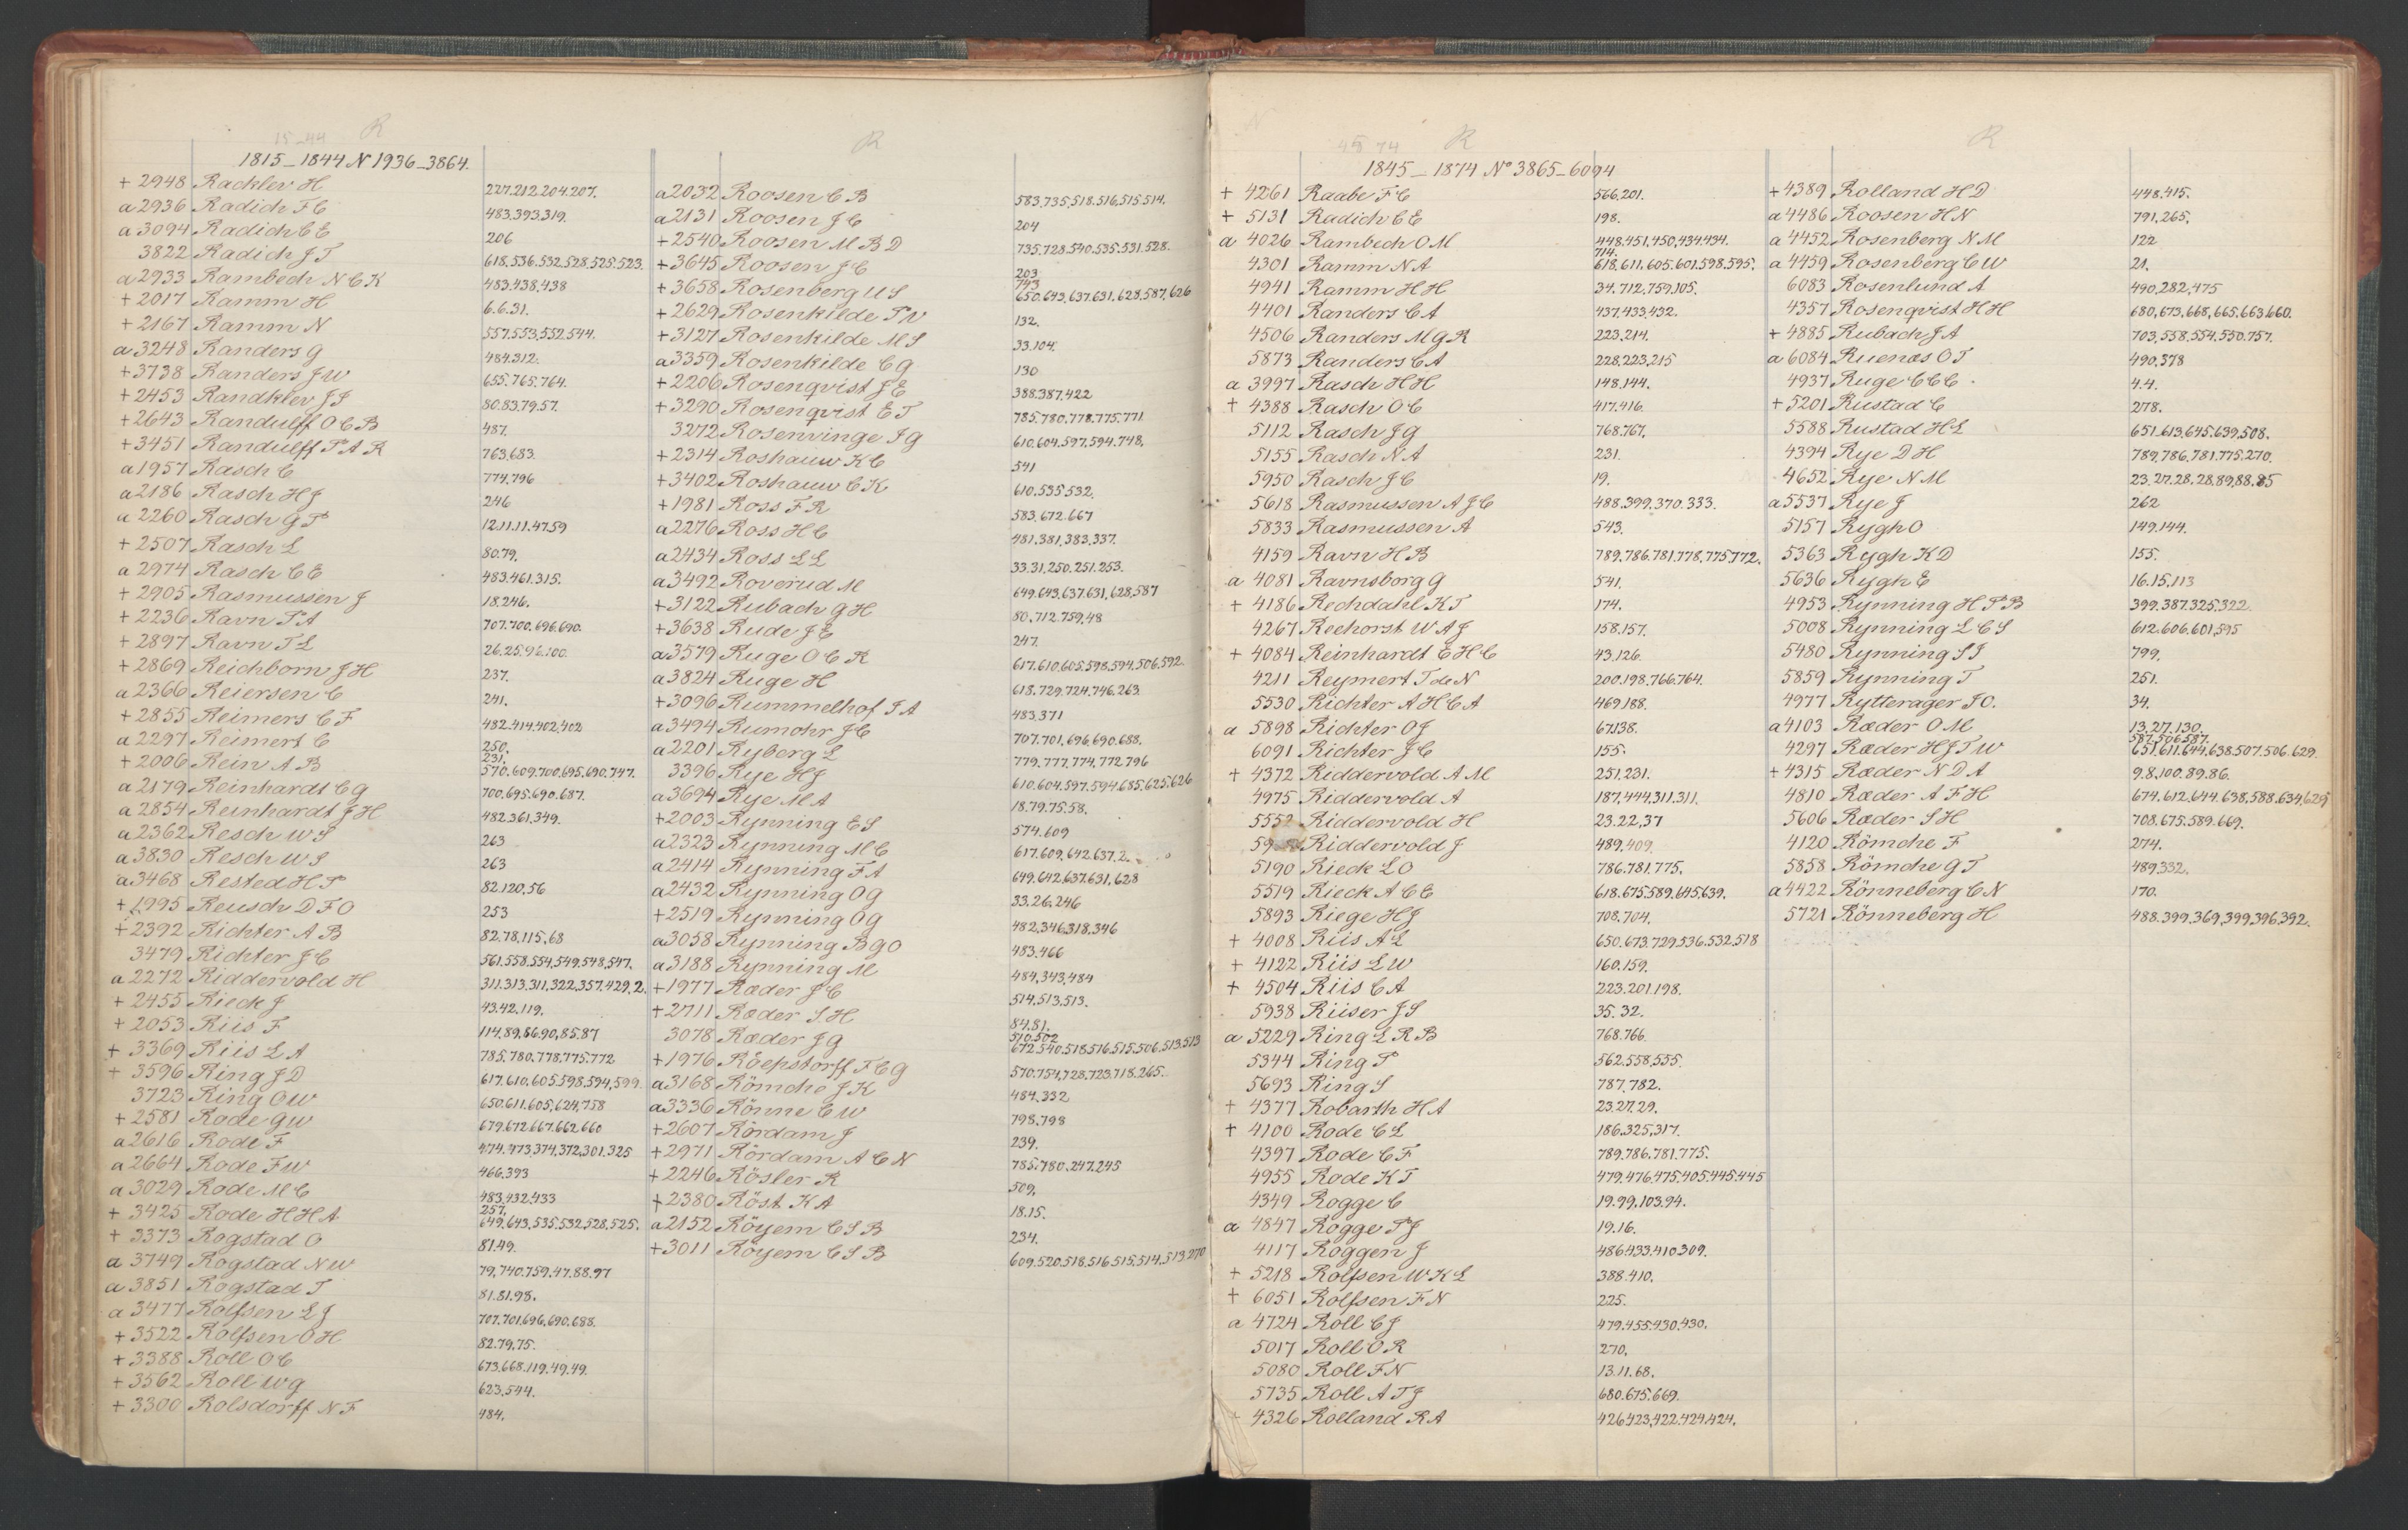 R
15-44
1815-1844 N 1936-3864.
+ 2948 Racklev H 227.212.204.207.
a 2936 Radich F C 483.393.319.
a 3094 Radich C E 206
3822 Radich J T 618.536.532.528.525.523.
a 2933 Rambech N C K 483.438.438
+ 2017 Ramm H 6.6.31.
+ 2167 Ramm N 557.553.552.544.
a 3248 Randers G 484.312.
+ 3738 Randers J W 655.765.764.
+ 2453 Randklev J J 80.83.79.57.
+ 2643 Randulff O C B 487.
+ 3451 Randulff P A R 763.683.
a 1957 Rasch C 774.796
a 2186 Rasch H J 246
a 2260 Rasch G P 12.11.11.47.59
+ 2507 Rasch L 80.79.
a 2974 Rasch C E 483.461.315.
+ 2905 Rasmussen J 18.246.
+ 2236 Ravn P A 707.700.696.690.
+ 2897 Ravn T L 26.25.96.100.
+ 2869 Reichborn J H 237.
a 2366 Reiersen C 241.
+ 2855 Reimers C F 482.414.402.402
a 2297 Reimert C 250.
231.
+ 2006 Rein A B 570.609.700.695.690.747.
a 2179 Reinhardt C G 700.695.690.687.
a 2854 Reinhardt J H 482.361.349.
a 2362 Resch W S 263
a 3830 Resch W S 263
a 3468 Rested H P 82.120.56
+ 1995 Reusch D F O 253
+ 2392 Richter A B 82.78.115.68
3479 Richter J C 561.558.554.549.548.547.
a 2272 Riddervold H 311.313.311.322.357.429.2.
+ 2455 Rieck J 43.42.119.
+ 2053 Riis F 114.89.86.90.85.87
+ 3369 Riis L A 785.780.778.775.772
+ 3596 Ring J D 617.610.605.598.594.599.
3723 Ring O W 650.611.605.624.758
+ 2581 Rode G W 679.672.667.662.660
a 2616 Rode F 474.473.374.372.301.325
a 2664 Rode F W 466.393
a 3029 Rode M C 483.432.433
257.
+ 3425 Rode H H A 649.643.535.532.528.525.
+ 3373 Rogstad O 81.49.
a 3749 Rogstad N W 79.740.759.47.88.97
a 3851 Rogstad T 81.81.98.
a 3477 Rolfsen L J 707.701.696.690.688.
+ 3522 Rolfsen O H 82.79.75.
+ 3388 Roll O C 673.668.119.49.49.
+ 3562 Roll W G 623.544.
+ 3300 Rolsdorff N F 484.
R
a 2032 Roosen C B 583.735.518.516.515.514.
a 2131 Roosen J C 204
+ 2540 Roosen M B D 735.728.540.535.531.528.
+ 3645 Roosen J C 203
743
+ 3658 Rosenberg U S 650.643.637.631.628.587.626
+ 2629 Rosenkilde P V 132.
+ 3127 Rosenkilde M S 33.104.
a 3359 Rosenkilde C G 130
+ 2206 Rosenqvist J E 388.387.422
+ 3290 Rosenqvist E T 785.780.778.775.771
3272 Rosenvinge J G 610.604.597.594.748.
+ 2314 Roshauw K C 541
+ 3402 Roshauw C K 610.535.532.
+ 1981 Ross F R 583.672.667
a 2276 Ross H C 481.381.383.337.
a 2434 Ross L L 33.31.250.251.253.
a 3492 Roverud M 649.643.637.631.628.587
+ 3122 Rubach G H 80.712.759.48
+ 3638 Rude J E 247.
a 3579 Ruge O C R 617.610.605.598.594.506.592.
a 3824 Ruge H 618.729.724.746.263.
+ 3096 Rummelhof J A 483.371
a 3494 Rumohr J C 707.701.696.690.688.
a 2201 Ryberg L 779.777.774.772.796
3396 Rye H J 610.604.597.594.685.625.626
a 3694 Rye M A 18.79.75.58.
+ 2003 Rynning E S 574.609
a 2323 Rynning M C 617.609.642.637.2.
a 2414 Rynning F A 649.642.637.631.628
a 2432 Rynning O G 33.26.246
+ 2519 Rynning O G 482.346.318.346
a 3058 Rynning B G O 483.466
a 3188 Rynning M 484.343.484
+ 1977 Ræder J C 514.513.513.
+ 2711 Ræder S H 84.81.
510.502
3078 Ræder J G 672.540.518.516.515.506.513.513
+ 1976 Röepstorff F C G 570.754.728.723.718.265.
a 3168 Römche J K 484.332
a 3336 Rönne C W 798.798
+ 2607 Rördam J 239.
+ 2971 Rördam A C N 785.780.247.245
+ 2246 Rösler R 509.
+ 2380 Röst K A 18.15.
a 2152 Röyem C S B 234.
+ 3011 Röyem C S B 609.520.518.516.515.514.513.270
R
45 74
1845-1874 No 3865-6094
+ 4261 Raabe F C 566.201.
+ 5131 Radich C E 198.
a 4026 Rambech O M 448.451.450.434.434.
714.
4301 Ramm N A 618.611.605.601.598.595.
4941 Ramm H H 34.712.759.105.
4401 Randers C A 437.433.432.
4506 Randers M G R 223.214.
5873 Randers C A 228.223.215
a 3997 Rasch H H 148.144.
+ 4388 Rasch O C 417.416.
5112 Rasch J G 768.767.
5155 Rasch N A 231.
5950 Rasch J C 19.
5618 Rasmussen A J C 488.399.370.333.
5833 Rasmussen A 543.
4159 Ravn H B 789.786.781.778.775.772.
a 4081 Ravnsborg G 541.
+ 4186 Rechdahl K T 174.
4267 Reehorst W A J 158.157.
+ 4084 Reinhardt E H C 43.126.
4211 Reymert T de N 200.198.766.764.
5530 Richter A H C A 469.188.
a 5898 Richter O J 67.138.
6091 Richter J C 155.
+ 4372 Riddervold A M 251.231.
4975 Riddervold A 187.444.311.311.
5552 Riddervold H 23.22.37
Riddervold J 489.409.
5190 Rieck L O 786.781.775.
5519 Rieck A C E 618.675.589.645.639.
5893 Riege H J 708.704.
+ 4008 Riis A L 650.673.729.536.532.518
+ 4122 Riis L W 160.159.
+ 4504 Riis C A 223.201.198.
5938 Riiser J S 35.32.
a 5229 Ring L R B 768.766.
5344 Ring P 562.558.555.
5693 Ring S 787.782.
+ 4377 Robarth H A 23.27.29.
+ 4100 Rode C L 186.325.317.
4397 Rode C F 789.786.781.775.
4955 Rode K T 479.476.475.405.445.445
4349 Rogge C 19.99.103.94.
a 4847 Rogge P J 19.16.
4117 Roggen J 486.433.410.309.
+ 5218 Rolfsen W K L 388.410.
+ 6051 Rolfsen F N 225.
a 4724 Roll C J 479.455.430.430.
5017 Roll O R 270.
5080 Roll F N 13.11.68.
5735 Roll A T J 680.675.669.
+ 4326 Rolland R A 426.423.422.424.424.
R
+ 4389 Rolland H D 448.415.
a 4486 Roosen H N 791.265.
a 4452 Rosenberg N M 122
a 4459 Rosenberg C W 21.
6083 Rosenlund A 490.282.475
4357 Rosenqvist H H 680.673.668.665.663.660.
+ 4885 Rubach J A 703.558.554.550.757.
a 6084 Ruenæs O T 490.378
4937 Ruge C C C 4.4.
+ 5201 Rustad C 278.
5588 Rustad H L 651.613.645.639.508.
4394 Rye D H 789.786.781.775.270.
4652 Rye N M 23.27.28.28.89.88.85
a 5537 Rye J 262
5157 Rygh O 149.144.
5363 Rygh K D 155.
5636 Rygh E 16.15.113
4953 Rynning H P B 399.387.325.322.
5008 Rynning L C S 612.606.601.595
5480 Rynning S J 799.
5859 Rynning T 251.
4977 Rytterager J O. 34.
a 4103 Ræder O M 13.27.130.
587.506.587.
4297 Ræder H J T W 651.611.644.638.507.506.629.
+ 4315 Ræder N D A 9.8.100.89.86.
4810 Ræder A F H 674.612.644.638.588.634.629
5606 Ræder S H 708.675.589.669.
4120 Römche F 274.
5858 Römche G T 489.332.
a 4422 Rönneberg C N 170.
5721 Rönneberg H 488.399.369.399.396.392.